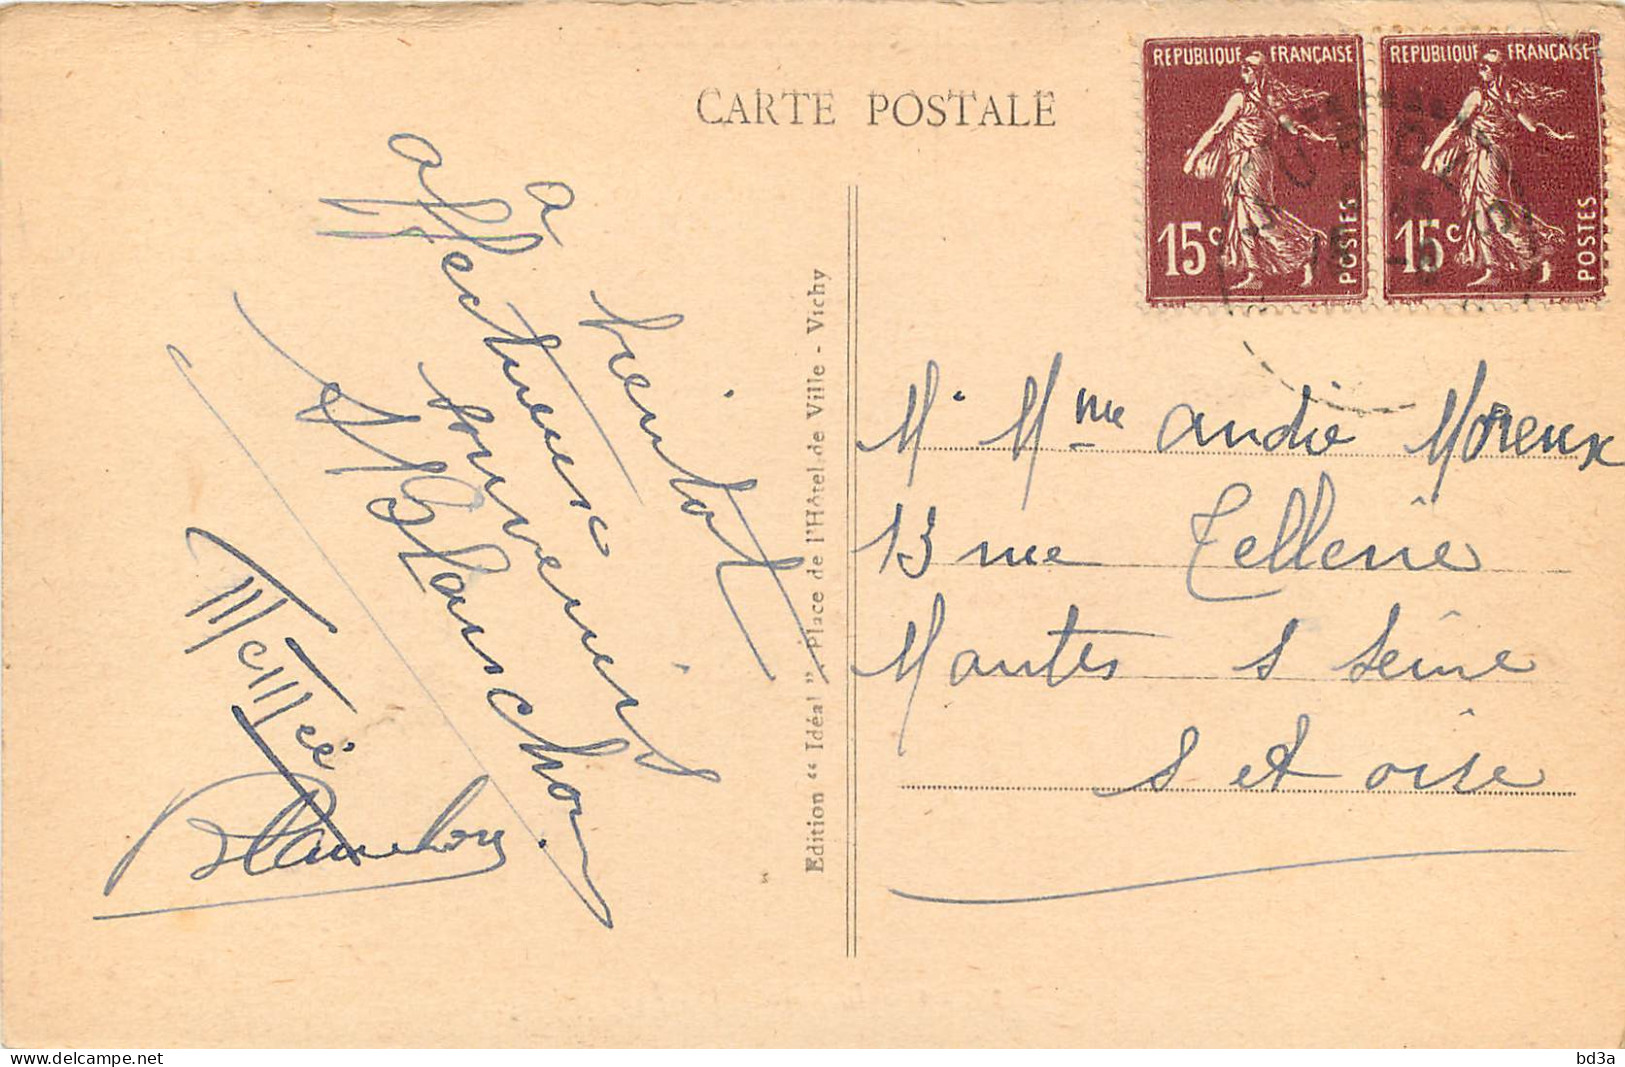 CARTE POSTALE
REPUBLIQUE FRANÇAISE
15c POSTES
REPUBLIQUE FRANÇAISE
15c POSTES
a bientot
affectueux
souvenirs
Blanchon
Blanchon
Edition “ Idéal ”, Place de l'Hôtel de Ville - Vichy
Mr Mme andré Moreux
13 rue Tellerie
Mantes s Seine
s et oise
delcampe.net
bd3a